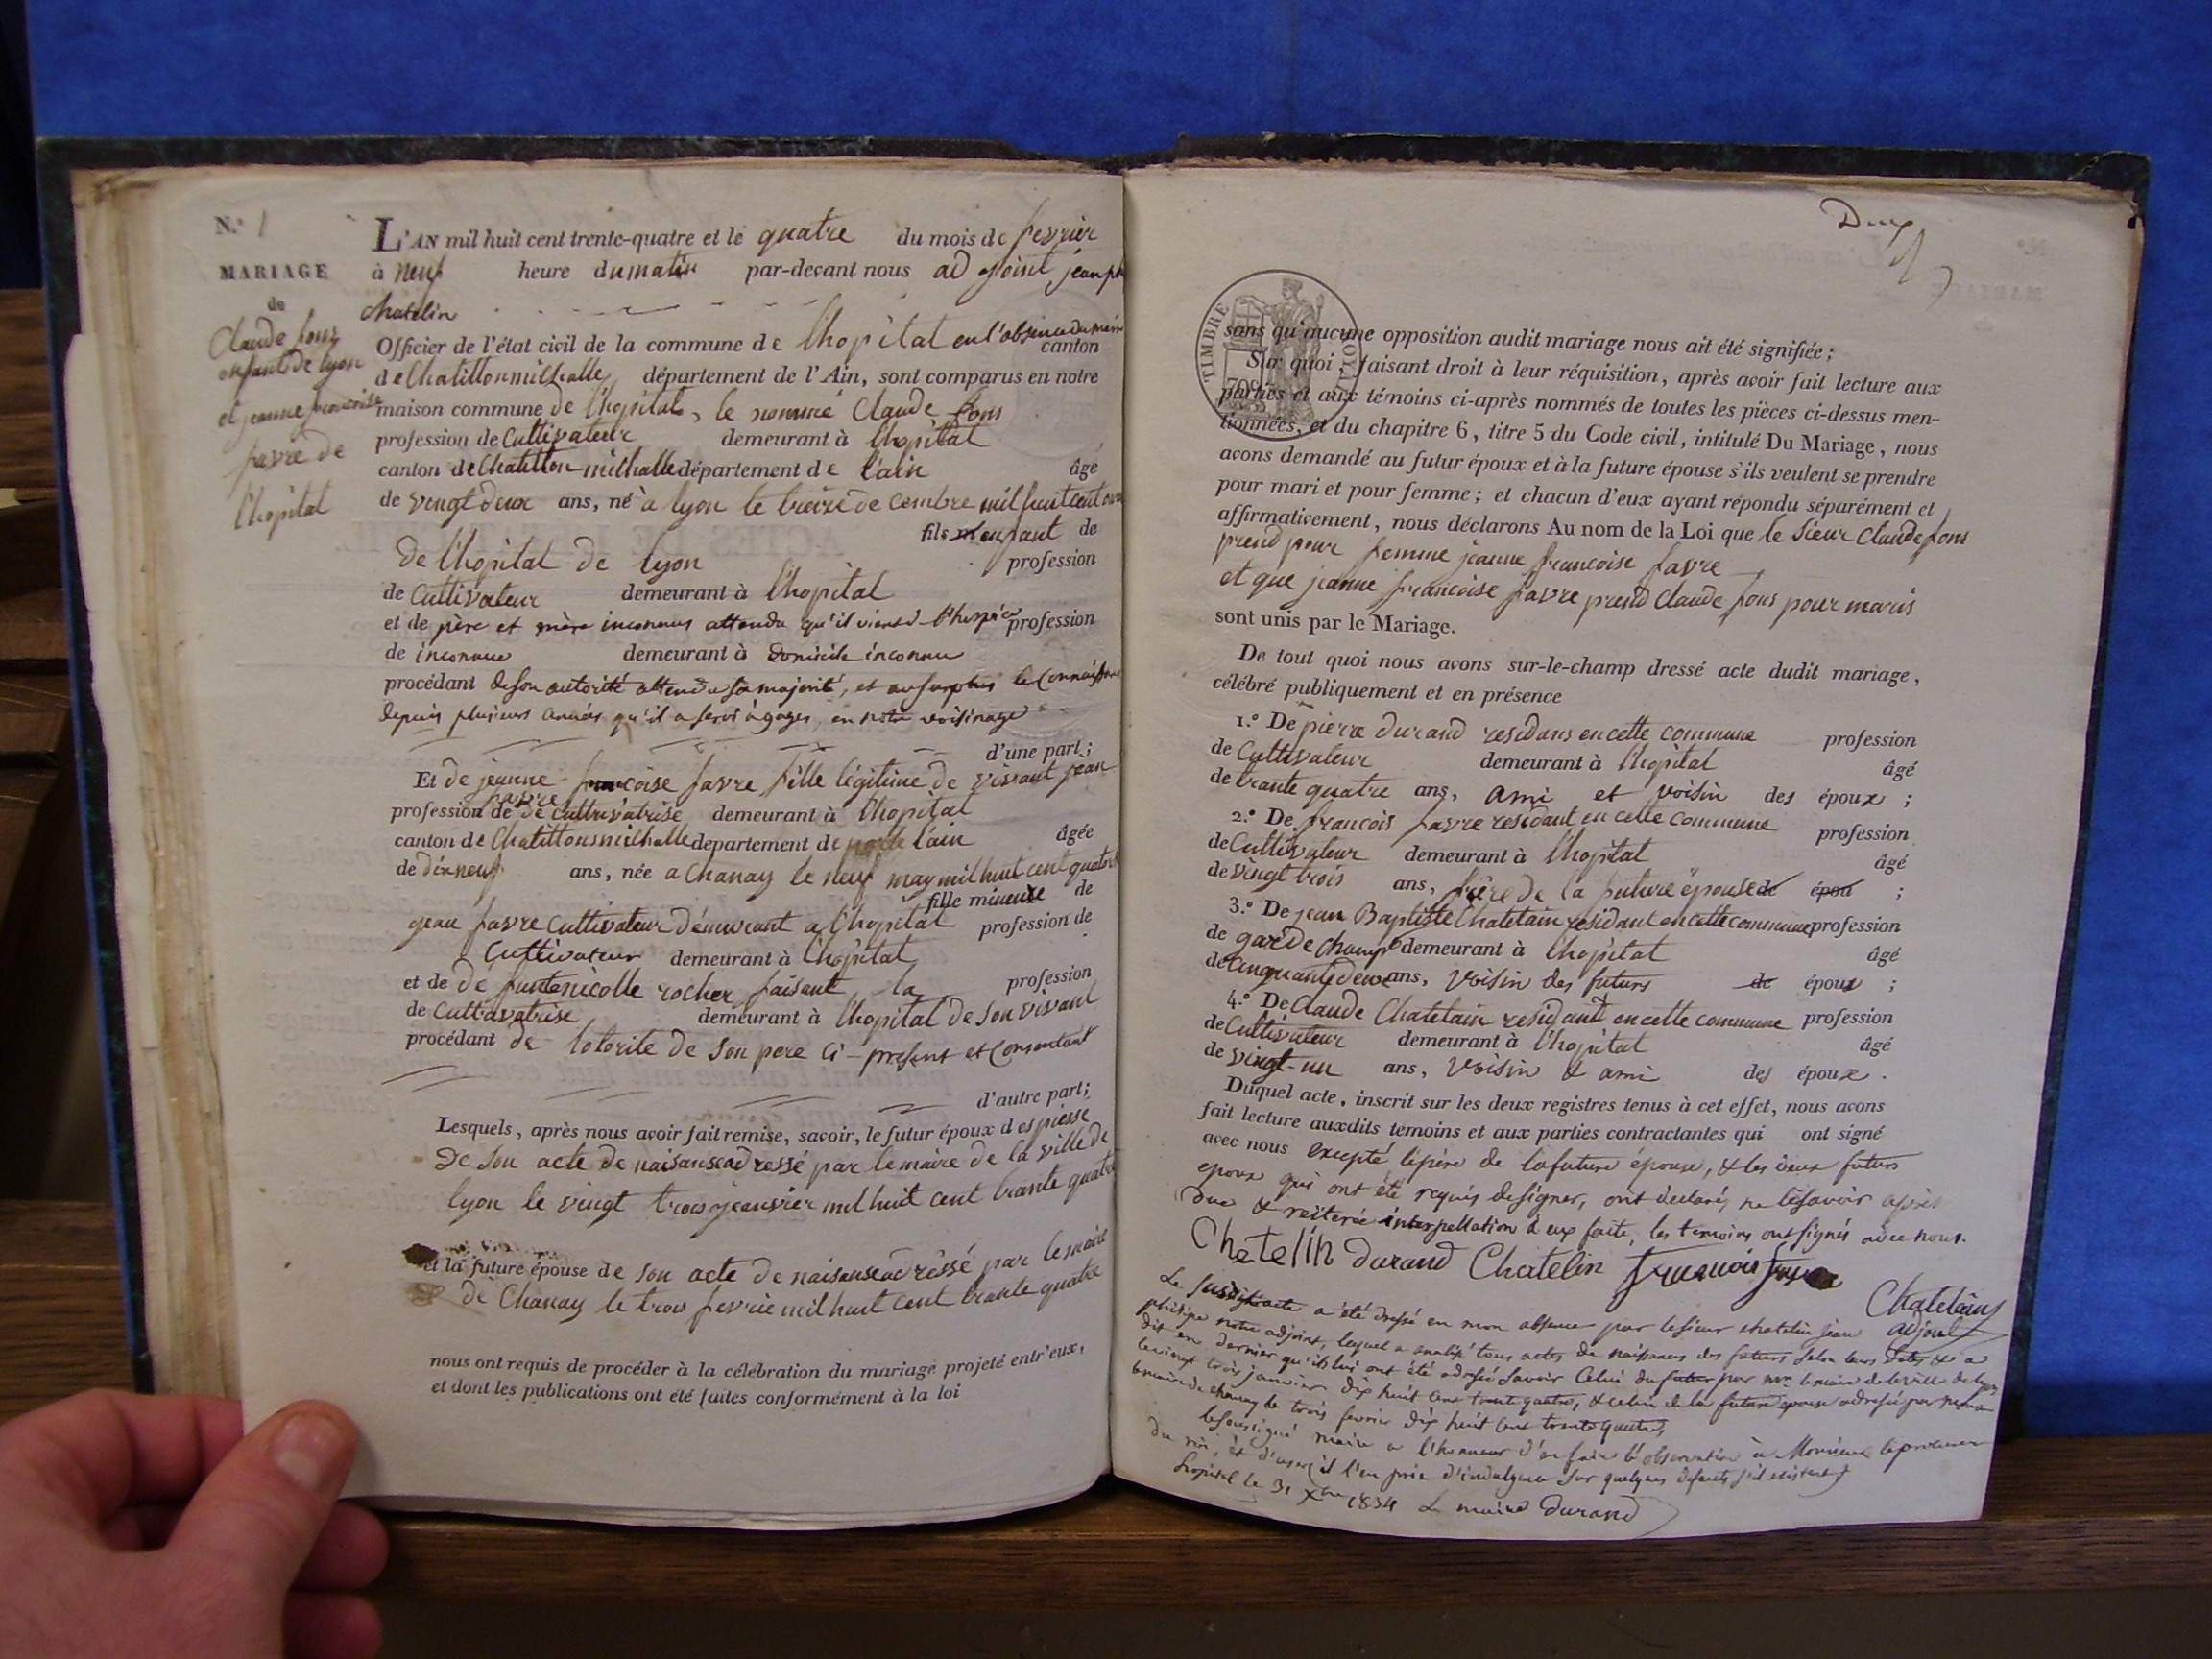 N.° 1
MARIAGE
de
Claude fons
enfant de lyon
et jeanne francoise
favre de
l'hopital
L'AN mil huit cent trente-quatre et le quatre du mois de fevrier
à neuf heure du matin par-devant nous adjoint jean ph
Chatelin
Officier de l'état civil de la commune de lhopital en l'absence du maire
canton
de Chatillonmichalle département de l'Ain, sont comparus en notre
maison commune de l'hopital, le nommé Claude fons
profession de Cultivateur demeurant à lhopital
canton de Chatillon michalle département de l'ain âgé
de vingt deux ans, né à lyon le treize de cembre mil huit cent onze
fils enfant de
de l'hopital de lyon profession
de Cultivateur demeurant à lhopital
et de père et mère inconnus attendu qu'il vient d l'hospice profession
de inconnue demeurant à domicile inconnu
procédant de son autorité attendu sa majorité, et au surplus le Connaissant
depuis plusieurs années qu'il a servi à gages en notre voisinage
d'une part;
Et de jeanne francoise favre fille légitime de vivant jean
favre
profession de de Cultivatrise demeurant à lhopital
canton de Chatillonsmichalle departement de l'ain âgée
de dix neuf ans, née a Chanay le neuf may mil huit cent quatorze
fille mineure de
jean favre Cultivateur démeurant a lhopital profession de
Cultivateur demeurant à lhopital
et de de funte nicolle rocher faisant la profession
de Cultivatrise demeurant à lhopital de son vivant
procédant de lotorite de son pere ci-present et Consentant
d'autre part;
Lesquels, après nous avoir fait remise, savoir, le futur époux des piesse
De son acte de naisanse adressé par le maire de la ville de
lyon le vingt trois jeanvier mil huit cent trante quatre
et la future épouse de son acte de naisanse adréssé par le maire
de Chanay le trois fevrie mil huit cent trante quatre
nous ont requis de procéder à la célébration du mariage projeté entr'eux,
et dont les publications ont été faites conformément à la loi
Deux
TIMBRE ROYAL
sans qu'aucune opposition audit mariage nous ait été signifiée;
Sur quoi, faisant droit à leur réquisition, après avoir fait lecture aux
parties et aux témoins ci-après nommés de toutes les pièces ci-dessus men-
tionnées, et du chapitre 6, titre 5 du Code civil, intitulé Du Mariage, nous
avons demandé au futur époux et à la future épouse s'ils veulent se prendre
pour mari et pour femme; et chacun d'eux ayant répondu séparément et
affirmativement, nous déclarons Au nom de la Loi que le Sieur Claude fons
prend pour femme jeanne francoise favre
et que jeanne francoise favre prend Claude fons pour maris
sont unis par le Mariage.
De tout quoi nous avons sur-le-champ dressé acte dudit mariage,
célébré publiquement et en présence
1.° De pierre durand residans en cette commune profession
de Cultivateur demeurant à lhopital âgé
de trante quatre ans, ami et voisin des époux;
2.° De francois favre residant en cette Commune profession
de Cultivateur demeurant à lhopital âgé
de vingt trois ans, frère de la future épouse de épou;
3.° De jean Baptiste Chatelain residant en cette commune profession
de garde champ demeurant à lhopital âgé
de Cinquante deux ans, voisin des futurs de époux;
4.° De Claude Chatelain residant en cette commune profession
de Cultivateur demeurant à l'hopital âgé
de vingt-un ans, Voisin & ami des époux.
Duquel acte, inscrit sur les deux registres tenus à cet effet, nous avons
fait lecture auxdits temoins et aux parties contractantes qui ont signé
avec nous excepté le père de la future épouse, & les deux futurs
epoux qui ont été requis de signer, ont déclaré ne le savoir après
due & reiterée interpellation à eux faite, les temoins ont signés avec nous.
Chetelin durand Chatelin francois favre
Chatelain
adjoint
Le susdit acte a été dressé en mon absence par le sieur chatelin jean
philipe notre adjoint, lequel a analisé tous actes de naissances des futurs selon leurs dates & a
dit en dernier qu'ils lui ont été adréssé Savoir Celui du futur par mr le maire de la ville de lyon
le vingt trois janvier dix huit cent trente quatre, & celui de la future épouse adressé par mr
le maire de chanay le trois fevrier dix huit cent trente quatre,
le soussigné maire a l'honneur d'en faire l'observation à Monsieur le procureur
du roi, et d'user il l'en prie d'indulgence sur quelques defauts s'il existent
Lhopital le 31 Xbre 1834 Le maire durand